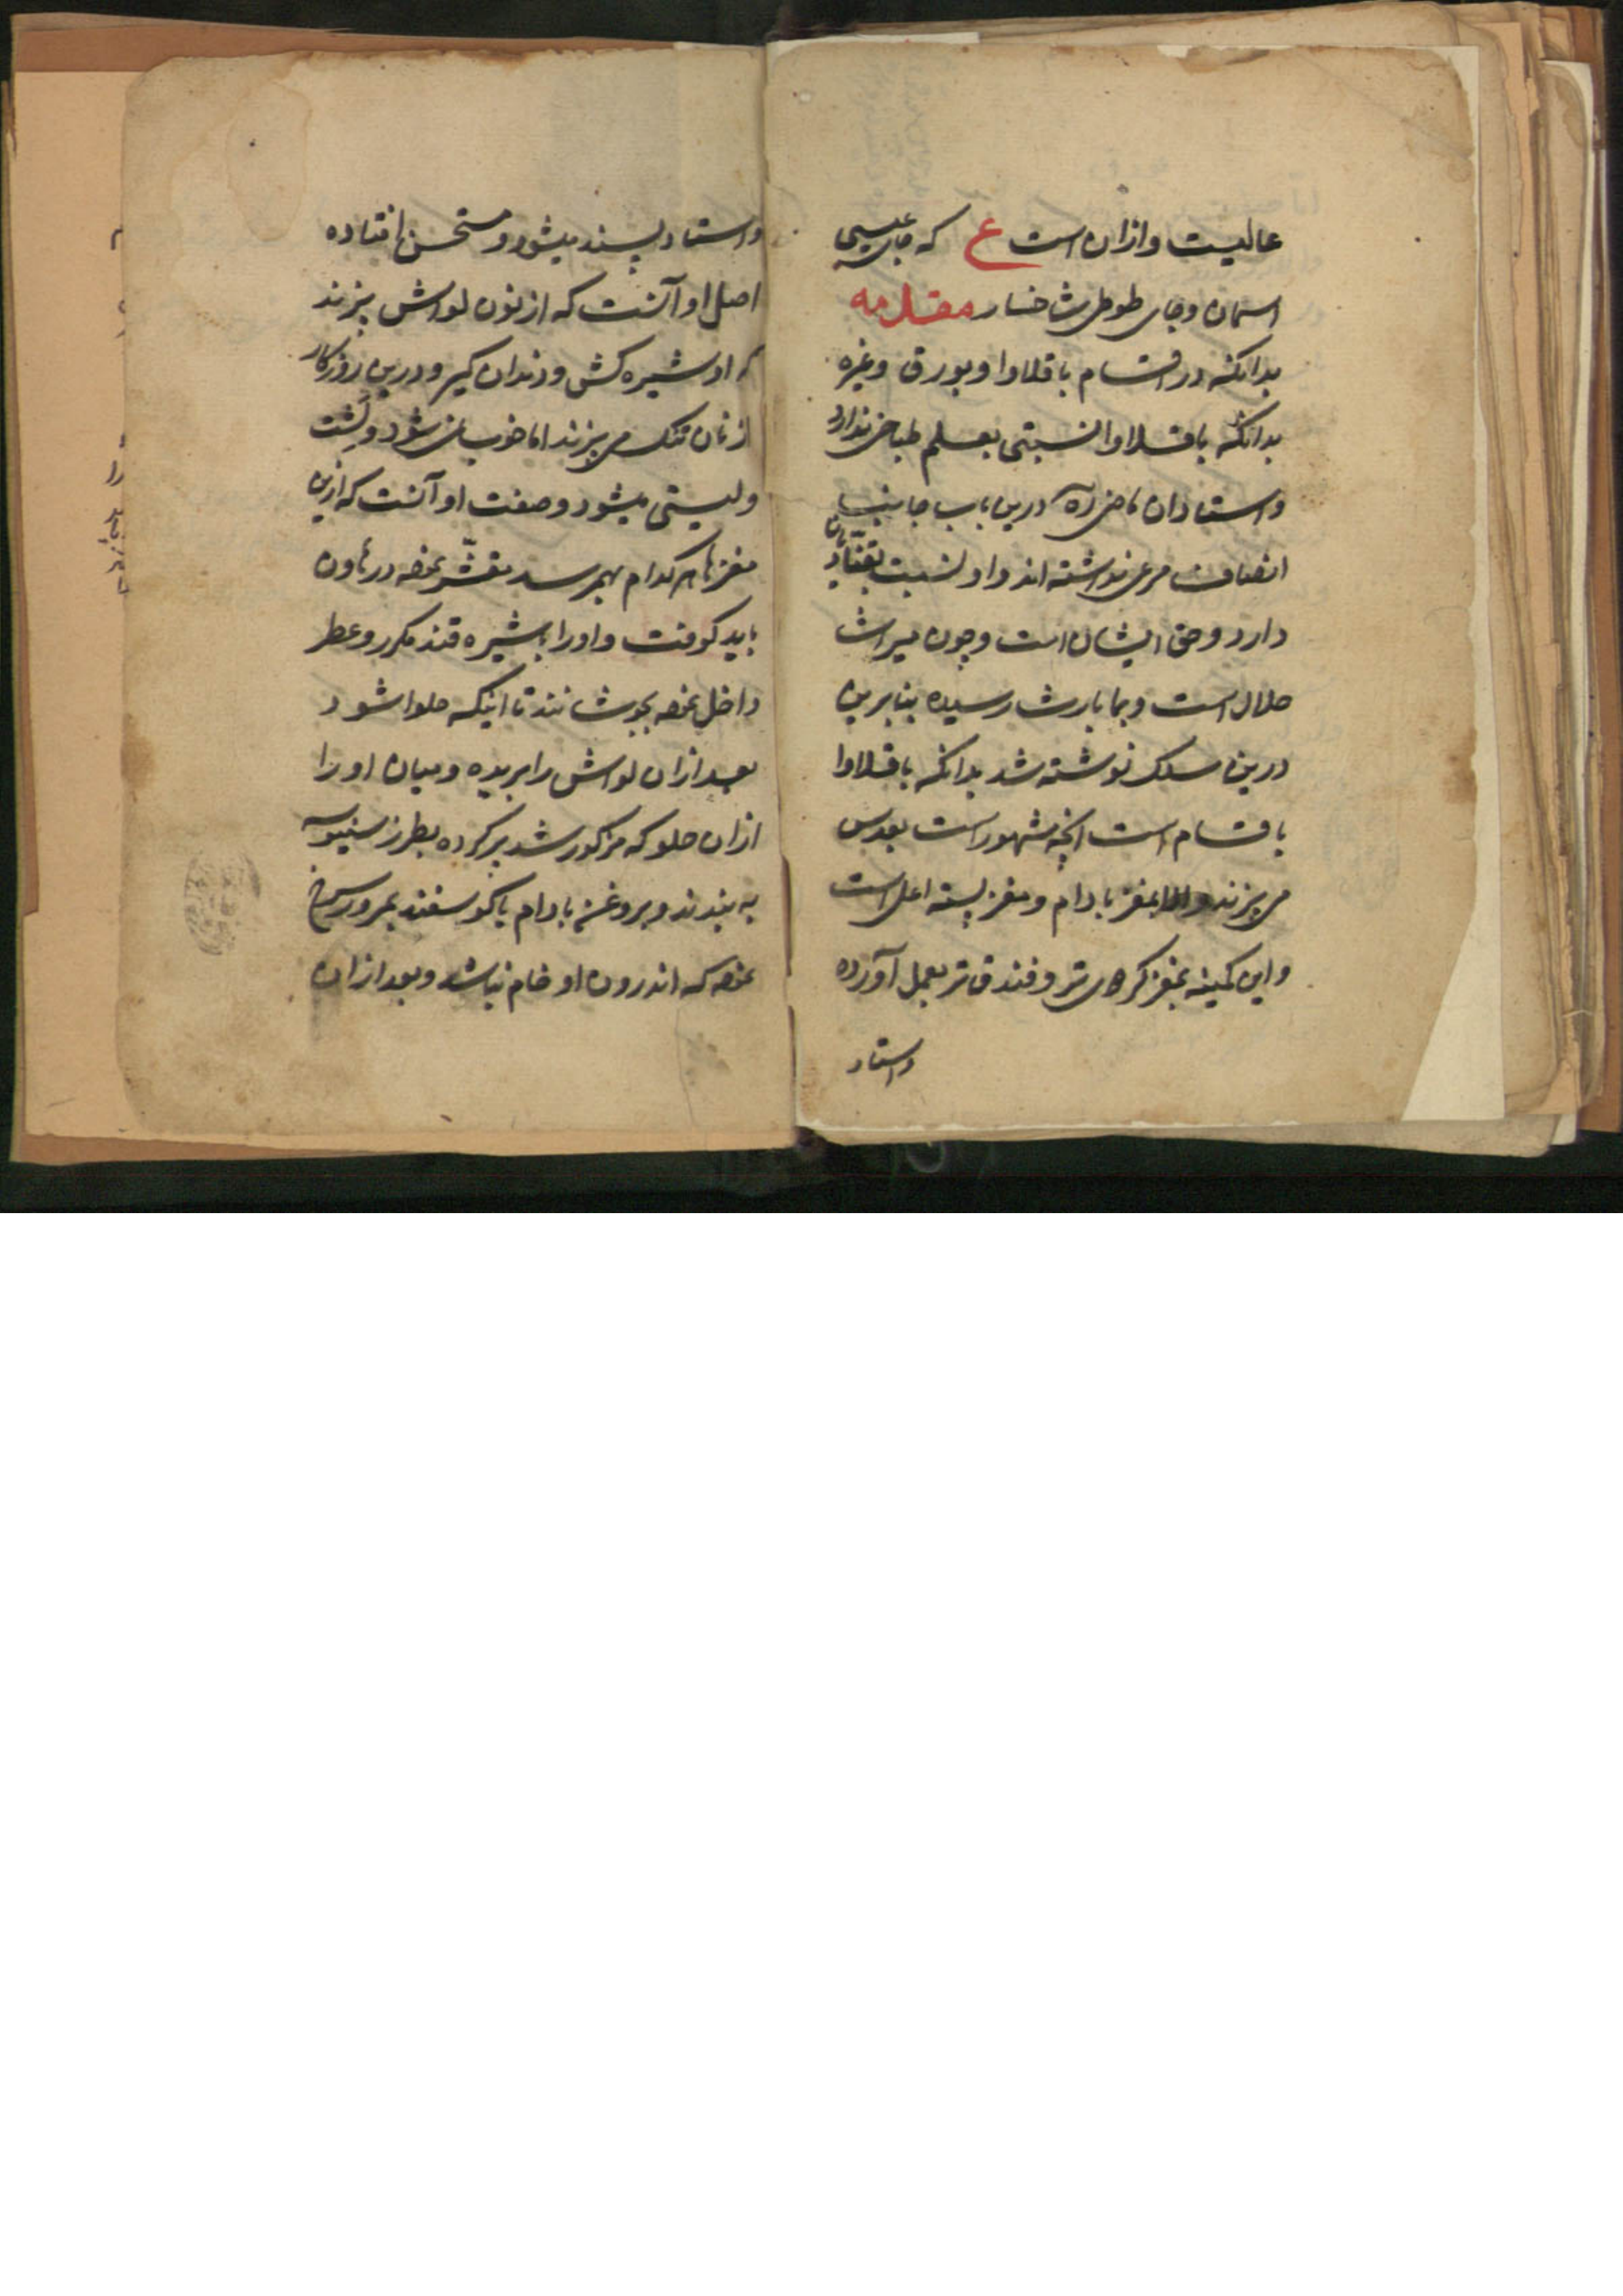 عالیست و ازان است ع که جای عیسی
اسمان و جای طوطی شاخسار مقدمه
بدانکه در اقسام باقلاوا و بورق و غیره
بدانکه باقلاوا نسبتی بعلم طباخی ندارد
و استادان ماضی درین باب جانب
انصاف مرعی نداشته‌اند و او نسبت بقنادان
دارد و حق ایشان است و چون میراث
حلال است و بما بارث رسیده بنابرین
درین سلک نوشته شد بدانکه باقلاوا
باقسام است انچه مشهور است بعدس
می‌پزند و اما بمغز بادام و مغز پسته اعلی است
و این کمینه بمغز کردی تر و فندق تر بعمل آورده
و استاد
و استاد پسند میشود و مستحسن افتاده
اصل او آنست که از نون لواش بپزند
که او شیره کش و دندان گیر و درین روزکار
از نان تنک می‌پزند اما خوب نمی‌شود و لشت
و لیستی میشود و صفت او آنست که ازین
مغزها هر کدام بهم رسد مقشّر نموده در هاون
باید کوفت و او را باشیره قند مکرر و عطر
داخل نموده بجوشانند تا اینکه حلوا شود
بعد ازان لواش را بریده و میان او را
ازان حلو که مذکور شد پر کرده بطرز سنبوسه
به بندند و بروغن بادام یا کوسفند بمرور سرخ
نموده که اندرون او خام نباشد و بعد ازان